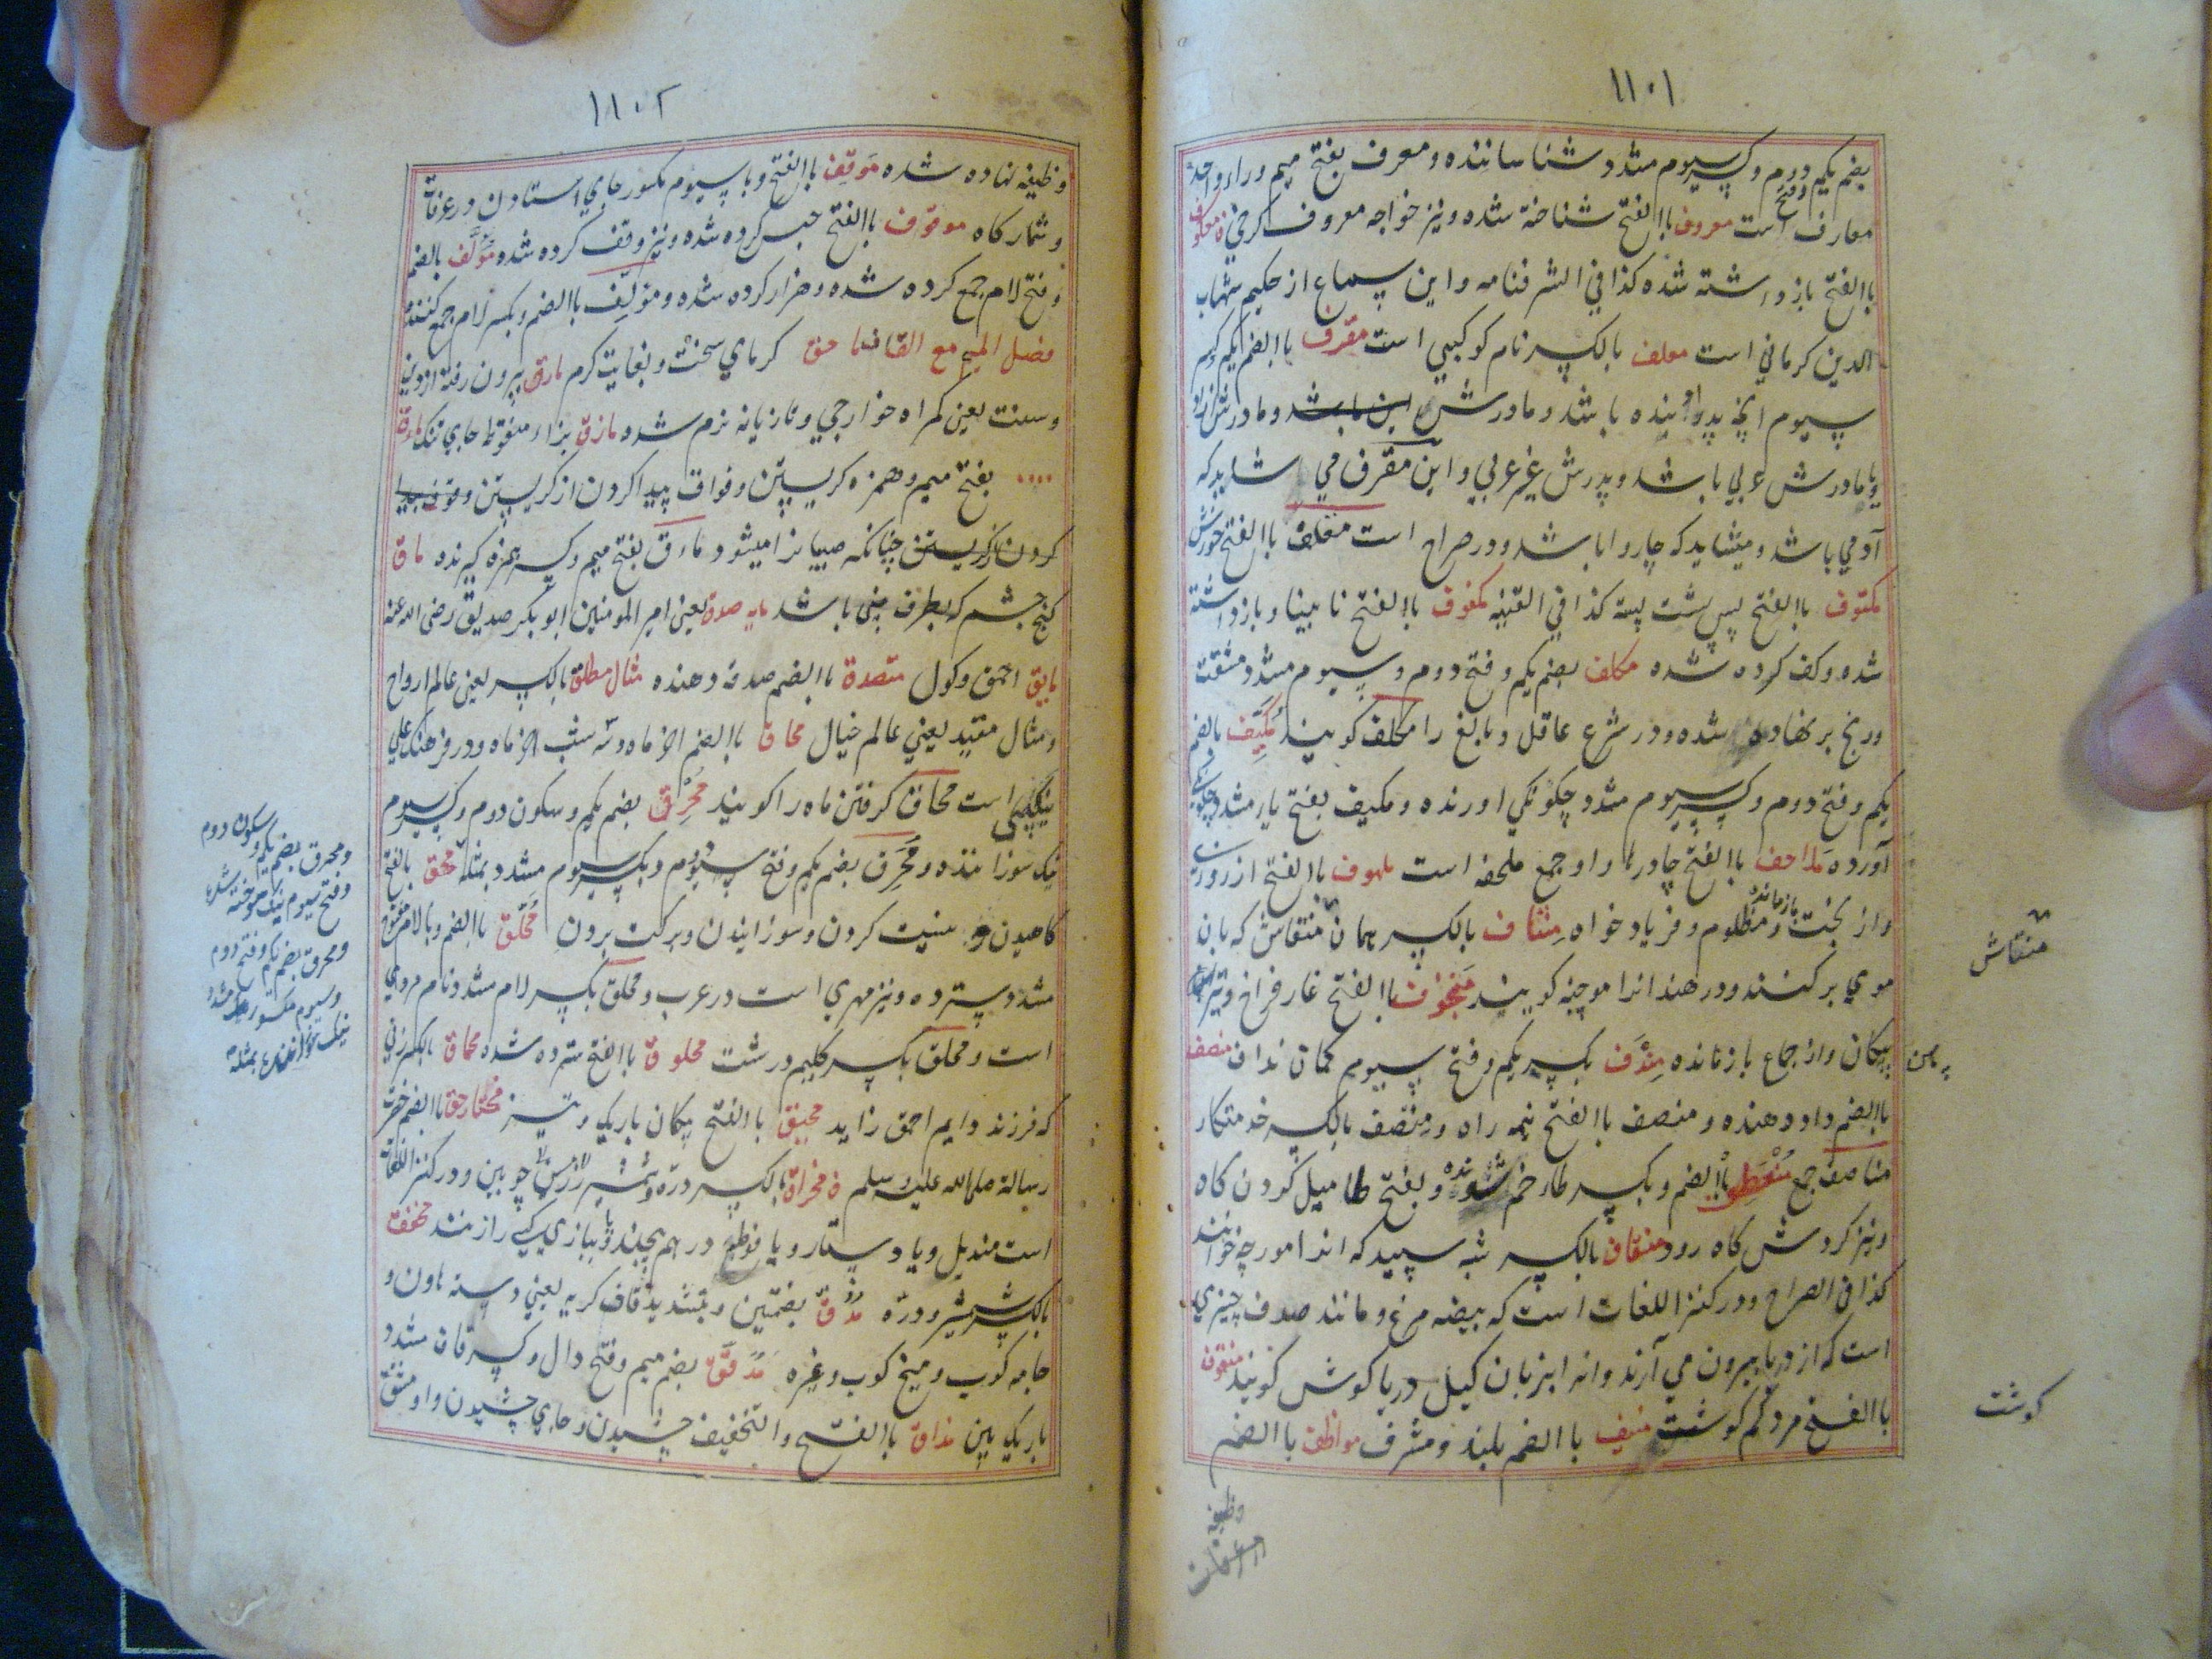 ۱۱۰۱
بضم یکم و فتح دوم و کسر سیوم مشدد شناسانده و معرف بفتح میم و راء واحد
معارف است معروف باالفتح شناخته شده و نیز خواجه معروف کرخی
باالفتح بازداشته شده کذا فی الشرفنامه و این سماع از حکیم شهاب
الدین کرمانی است معلف بالکسر نام کوکبی است مقرف باالضم یکم و کسر
سیوم انچه پدر باشد و مادرش این باشد و مادرش
و یا مادرش عربی باشد و پدرش غیر عربی و این مقرف می شاید که
آدمی باشد و میشاید که چاروا باشد و در صراح است باالفتح
مکتوف باالفتح پس پشت بسته کذا فی القنیه مکفوف باالفتح نابینا و بازداشته
شده و کف کرده شده مکلف بضم یکم و فتح دوم و سیوم مشدد مشقت
و رنج بر نهاده شده و در شرع عاقل و بالغ را مکلف گویند مکیف بالضم
یکم و فتح دوم و کسر سیوم مشدد چگونگی اورنده و مکیف بفتح یاء مشدد
آورده ملاحف باالفتح چادرها و او جمع ملحفه است ملهوف باالفتح
و از بخت بازمانده و مظلوم و فریاد خواه منتاف بالکسر همان منقاش که بان
موی برکنند و در هند انرا موچنه گویند منجوف باالفتح غار فراخ و تیر
پیکان و از جماع بازمانده مندف بکسر یکم و فتح سیوم کمان نداف منصف
باالضم داد دهنده و منصف باالفتح نیمه راه و منصف بالکسر خدمتکار
مناصف جمع منعطف باالضم و بکسر طاء خم شونده و بفتح طا میل کردن گاه
و نیز گردش گاه رود منقاف بالکسر شبه سپید که انرا مورچه خوانند
کذا فی الصراح و در کنز اللغات است که بیضه مرغ و مانند صدف چیزی
است که از دریا بیرون می آرند و انرا بزبان گیل دریا گوش گویند منقوف
باالفتح مرد کم گوشت منیف باالضم بلند و مشرف مواظف باالضم
منقاش
گوشت
وظیفه
۱۱۰۲
وظیفه نهاده شده موقف باالفتح و با سیوم مکسور جای استادن در عرفات
و شمار گاه موقوف باالفتح حبس کرده شده و نیز وقف کرده شده مؤلف بالضم
و فتح لام جمع کرده شده و هزار کرده شده و مؤلف باالضم و بکسر لام جمع کننده
فصل المیم مع القاف ماحق گرمای سخت و بغایت گرم مارق بیرون رفته از دین
و سنت یعنی گمراه خوارجی و تازیانه نرم شده مازق بزاء منقوط جای تنک
بفتح میم و همزه گریستن و فواق پیدا کردن از گریستن
کردن از گریستن چنانکه صبیانرا میشود و ماءق بفتح میم و کسر همزه گیرنده ماق
کنج چشم که بطرف بینی باشد مایه صدق یعنی امیر المومنین ابو بکر صدیق رضی الله عنه
مایق احمق و گول متصدق باالضم صدقه دهنده مثال مطلق بالکسر یعنی عالم ارواح
و مثال مقید یعنی عالم خیال محاق باالضم اخر ماه و سه شب اخر ماه و در فرهنگ علی
است محاق گرفتن ماه را گویند محرق بضم یکم و سکون دوم و کسر سیوم
نیک سوزاننده و محرق بضم یکم و فتح دوم و بکسر سیوم مشدد بمثله محق بالفتح
کاهیدن و نیست کردن و سوزانیدن و برکت بردن محلق باالضم و بالام مفتوح
مشدد سترده و نیز مهری است در عرب و محلق بکسر لام مشدد نام مردی
است و محلق بکسر گلیم درشت محلوق باالفتح سترده شده محماق بالکسر زنی
که فرزند دایم احمق زاید محیق باالفتح پیکان باریک و تیز مختار حق باالضم حضرت
رسالة صلی الله علیه وسلم مخراق بالکسر دره و شمشیر چوبین و در کنز اللغات
است مندیل و یا دستار و یا فوطه درهم پیچند و ببازی کسی را زنند مخفق
بالکسر شمشیر و دره مدق بضمتین و بتشدید قاف کریه یعنی دسته هاون و
جامه کوب و میخ کوب و غیره مدقق بضم میم و فتح دال و کسر قاف مشدد
باریک بین مذاق باالفتح و التخفیف چشیدن و جای چشیدن و او
و محرق بضم یکم و سکون دوم
و فتح سیوم نیک سوخته شده
و محرق بضم یکم و فتح دوم
و سیوم مکسور مشدد